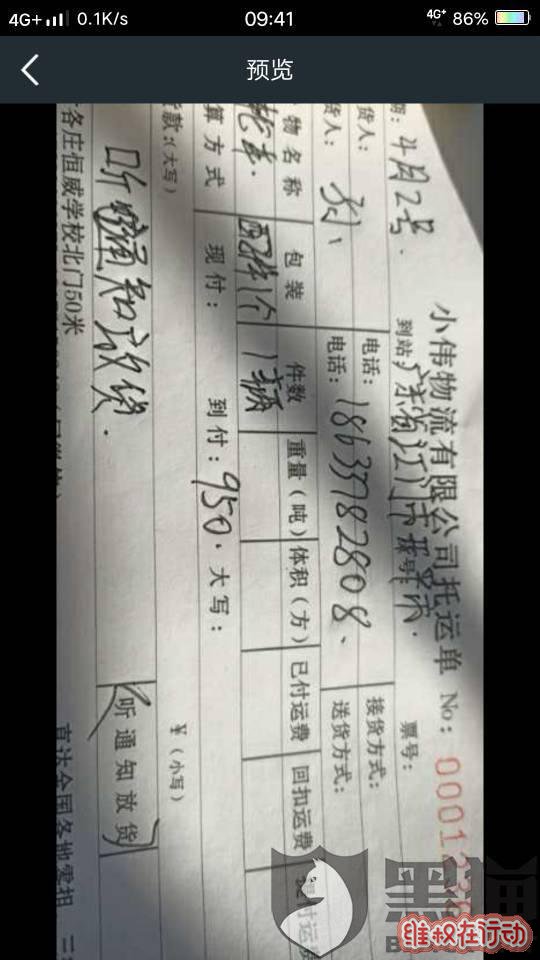 4G+ 0.1K/s 09:41 4G+ 86%
预览
小伟物流有限公司托运单 No: 00012
期: 4月2号. 到站: 广东省江门市 票号:
货人: 电话: 接货方式:
货人: 刘 电话: 18633782808、 送货方式:
物名称 包装 件数 重量(吨) 体积(方) 已付运费 回扣运费
配件1个 1辆
算方式 现付: 到付: 950. 大写:
款:(大写) ¥(小写)
听通知放货. 听通知放货
各庄恒威学校北门50米 直达全国各地零担
黑猫
维权在行动